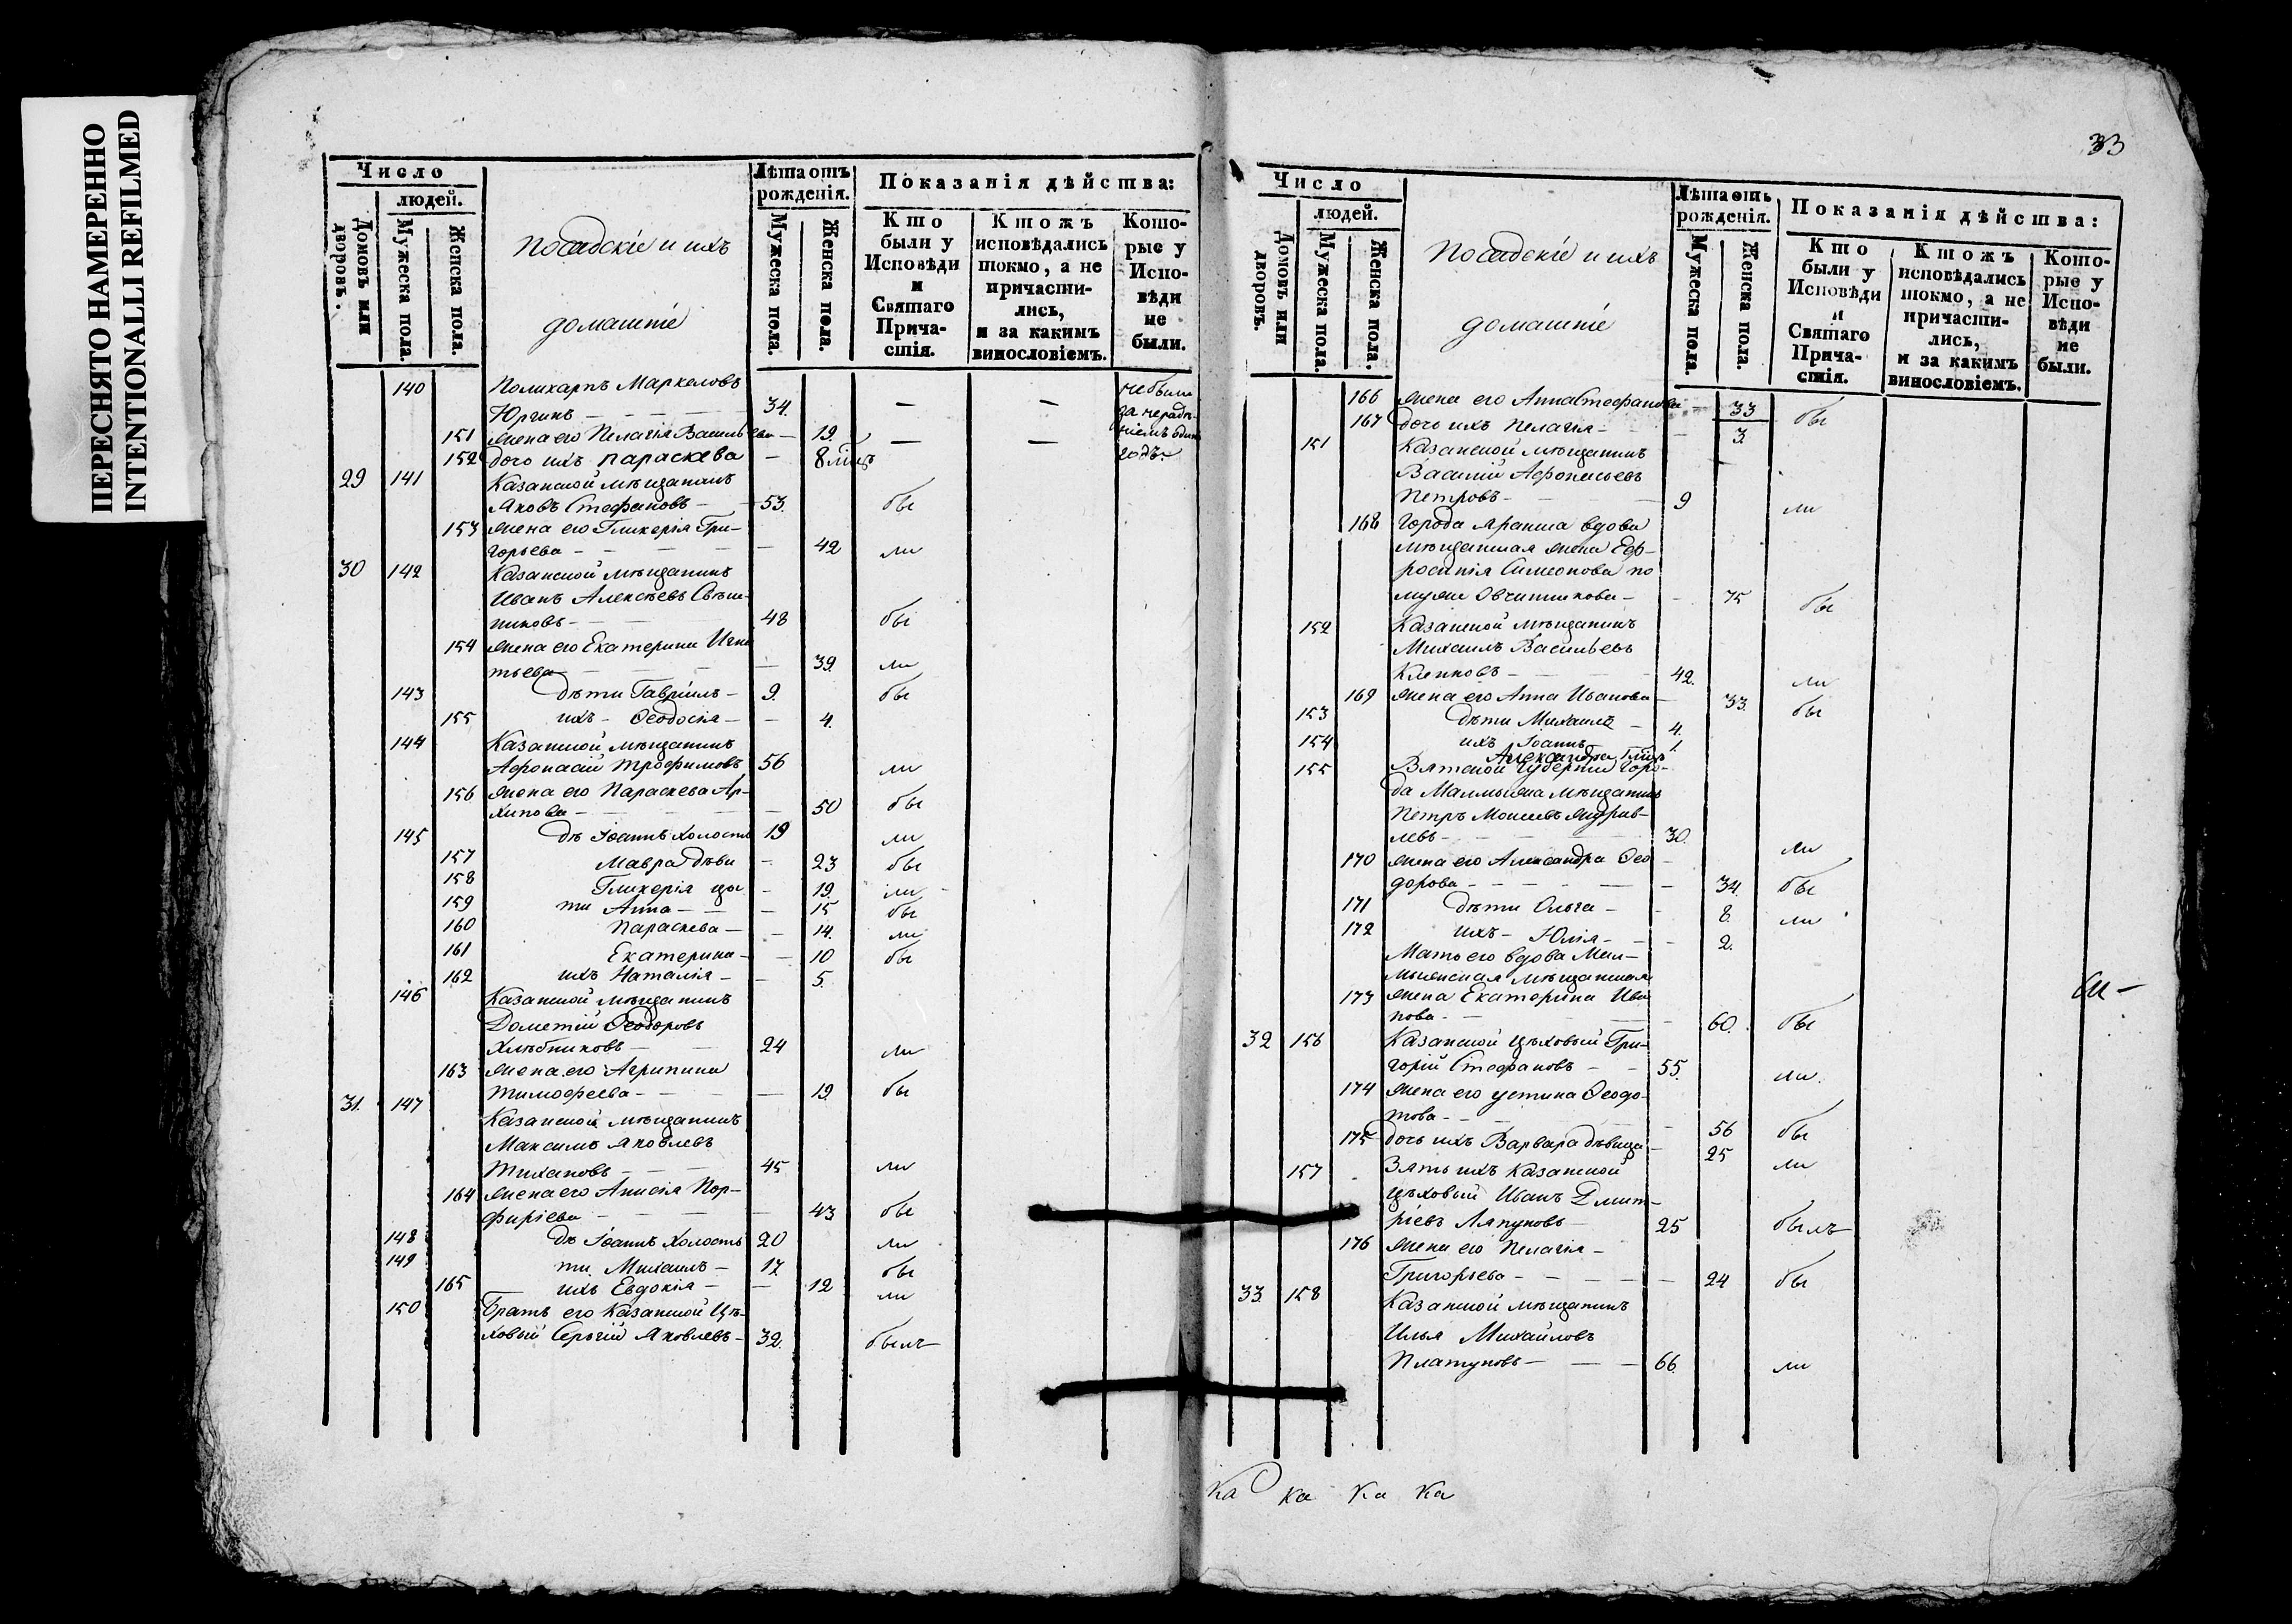 ПЕРЕСНЯТО НАМЕРЕННО
INTENTIONALLI REFILMED
Число
людей.
Домовъ или дворовъ.
Мужеска пола.
Женска пола.
Посадскіе и ихъ
домашніе
Лѣта отъ рожденія.
Мужеска пола.
Женска пола.
Показанія дѣйства:
Кто были у Исповѣди и Святаго Прича-стія.
Ктожъ исповѣдались токмо, а не причасти-лись, и за какимъ винословіемъ.
Кото-рые у Испо-вѣди не были.
140 Поликарпъ Маркеловъ не были
Юргинъ — 34. — — за нерадѣ-
151 жена его Пелагія Васильева — 19. — — ніемъ одинъ
152 дочь ихъ Параскева — 8 мѣцъ годъ.
29 141 Казанской мѣщанинъ
Яковъ Стефановъ — 53. бы
153 жена его Гликерія Гри-
горьева — 42 ли
30 142 Казанской мѣщанинъ
Иванъ Алексѣевъ Свѣш-
никовъ — 48 бы
154 жена его Екатерина Игна
тьева — 39. ли
143 дѣти Гавріилъ — 9. бы
155 ихъ — Ѳеодосія — 4.
144 Казанской мѣщанинъ
Афонасій Трофимовъ 56 ли
156 жена его Параскева Ар-
хипова — 50 бы
145 дѣ Іоаннъ холостъ 19 ли
157 Мавра дѣви — 23 бы
158 Гликерія цы — 19. ли
159 ти Анна — 15 бы
160 Параскева — 14. ли
161 Екатерина — 10 бы
162 ихъ Наталія — 5.
146 Казанской мѣщанинъ
Дометій Ѳеодоровъ
Хлѣбниковъ — 24 ли
163 жена его Агрипина
Тимофеева — 19. бы
31. 147 Казанской мѣщанинъ
Максимъ Яковлевъ
Тихановъ — 45 ли
164 жена его Анисія Пор-
фиріева — 43 бы
148 дѣ Іоаннъ холостъ 20 ли
149 ти Михаилъ — 17 бы
165 ихъ Евдокія — 12 ли
150 Братъ его Казанской Цѣ-
ховый Сергій Яковлевъ — 32. былъ
33
Число
людей.
Домовъ или дворовъ.
Мужеска пола.
Женска пола.
Посадскіе и ихъ
домашніе
Лѣта отъ рожденія.
Мужеска пола.
Женска пола.
Показанія дѣйства:
Кто были у Исповѣди и Святаго Прича-стія.
Ктожъ исповѣдались токмо, а не причасти-лись, и за какимъ винословіемъ.
Кото-рые у Испо-вѣди не были.
166 жена его Анна Стефанова — 33 бы
167 дочь ихъ Пелагія — 3.
151 Казанской мѣщанинъ
Василій Афонасьевъ
Петровъ — 9 ли
168 Города Яранска вдова
мѣщанская жена Еф-
росинія Симеонова по
мужѣ Овчинникова — 75 бы
152 Казанской мѣщанинъ
Михаилъ Васильевъ
Клепковъ — 42. ли
169 жена его Анна Иванова — 33. бы
153 дѣти Михаилъ — 4.
154 ихъ Іоаннъ — 1.
Александра
155 Вятской губерніи горо-
да Малмыжа мѣщанинъ
Петръ Моисеевъ Журав-
левъ — 30. ли
170 жена его Александра Ѳео
дорова — 34. бы
171 дѣти Ольга — 8. ли
172 ихъ — Юлія — 2.
Мать его вдова Мал-
мыжская мѣщанская
173 жена Екатерина Ива
нова — 60. бы
32 156 Казанской цѣховый Гри-
горій Стефановъ — 55. ли
174 жена его Устина Ѳеодо-
това — 56 бы
175 дочь ихъ Варвара дѣвица — 25 ли
157 Зять ихъ Казанской
цѣховый Иванъ Дмит-
ріевъ Ляпуновъ — 25 былъ
176 жена его Пелагія —
Григорьева — 24 бы
33. 158 Казанской мѣщанинъ
Илья Михайловъ
Платуновъ — 66. ли
ка ка ка ка